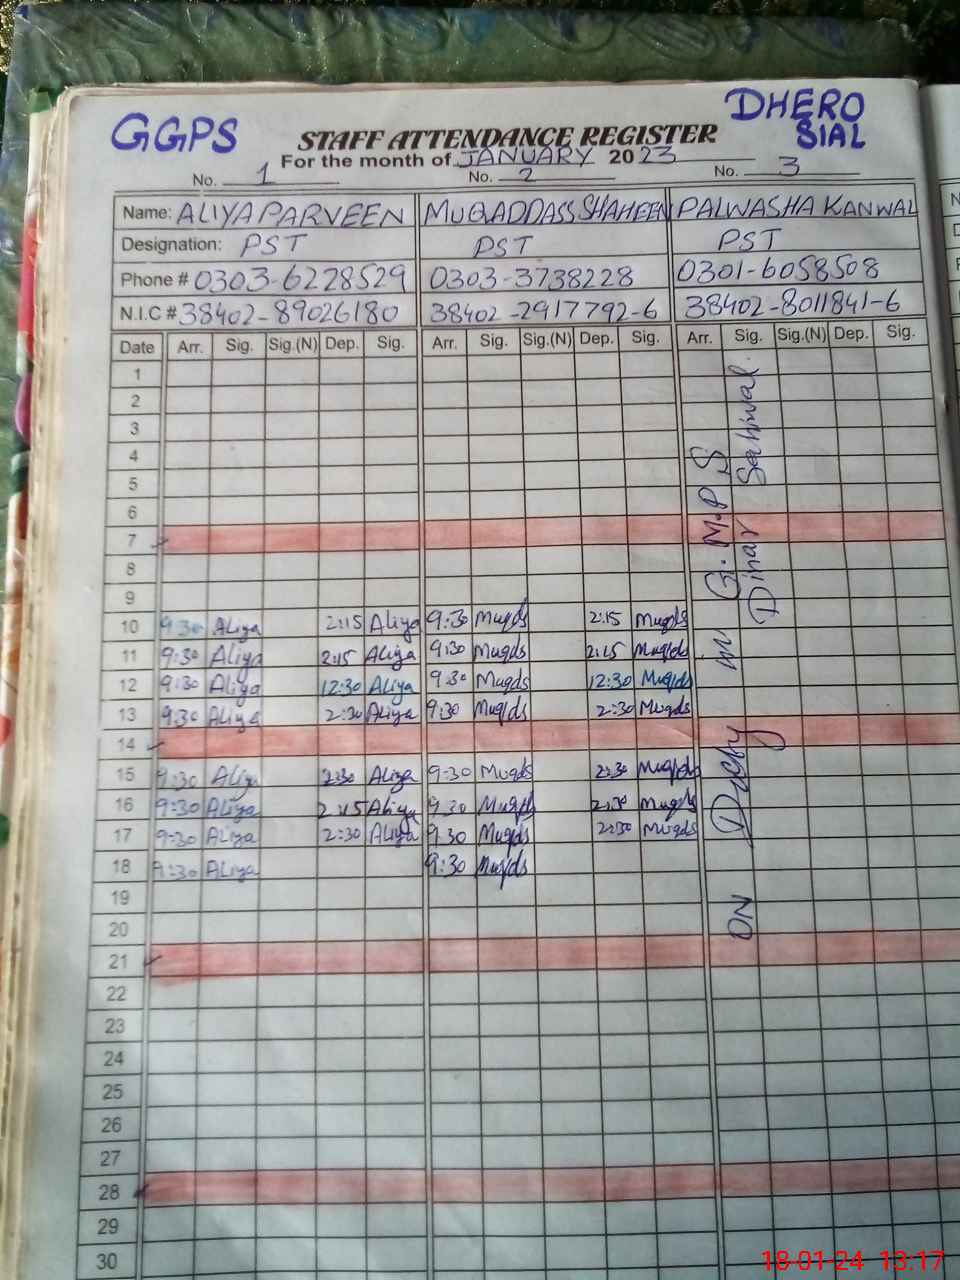 GGPS
DHERO
SIAL
STAFF ATTENDANCE REGISTER
For the month of JANUARY 2023
No. 1 No. 2 No. 3
Name: ALIYA PARVEEN MUQADDASS SHAHEEN PALWASHA KANWAL
Designation: PST PST PST
Phone # 0303-6228529 0303-3738228 0301-6058508
N.I.C # 38402-89026180 38402-2917792-6 38402-8011841-6
Date Arr. Sig. Sig.(N) Dep. Sig. Arr. Sig. Sig.(N) Dep. Sig. Arr. Sig. Sig.(N) Dep. Sig.
1
2
3
4
5
6
7
8
9
10 9:30 Aliya 2:15 Aliya 9:30 Muqds 2:15 Muqds
11 9:30 Aliya 2:15 Aliya 9:30 Muqds 2:15 Muqds
12 9:30 Aliya 12:30 Aliya 9:30 Muqds 12:30 Muqds
13 9:30 Aliya 2:30 Aliya 9:30 Muqds 2:30 Muqds
14
15 9:30 Aliya 2:30 Aliya 9:30 Muqds 2:30 Muqds
16 9:30 Aliya 2:15 Aliya 9:30 Muqds 2:30 Muqds
17 9:30 Aliya 2:30 Aliya 9:30 Muqds 2:30 Muqds
18 9:30 Aliya 9:30 Muqds
19
20
21
22
23
24
25
26
27
28
29
30
ON Duty in G.M.P.S
Dinar Sahiwal.
18-01-24 13:17